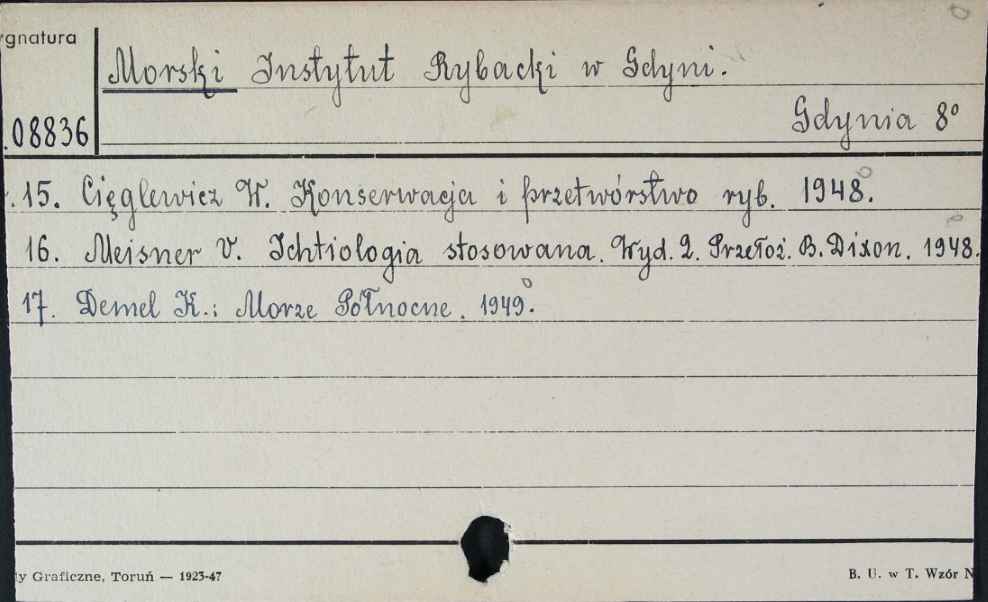 ygnatura
Morski Instytut Rybacki w Gdyni.
.08836
Gdynia 8°
15. Cięglewicz W. Konserwacja i przetwórstwo ryb. 1948.
16. Meisner V. Ichtiologia stosowana. Wyd. 2. Przełoż. B. Dixon. 1948.
17. Demel K.: Morze Północne. 1949.
y Graficzne, Toruń — 1923-47
B. U. w T. Wzór N